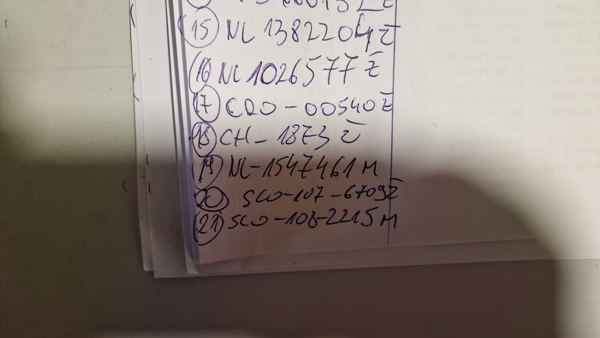 15 NL 1382204 Ž
16 NL 1026577 Ž
17 CQO-00540 Ž
18 CH-1873 Ž
19 NL-1547461 M
20 SLO-107-6709 Ž
21 SLO-108-2215 M